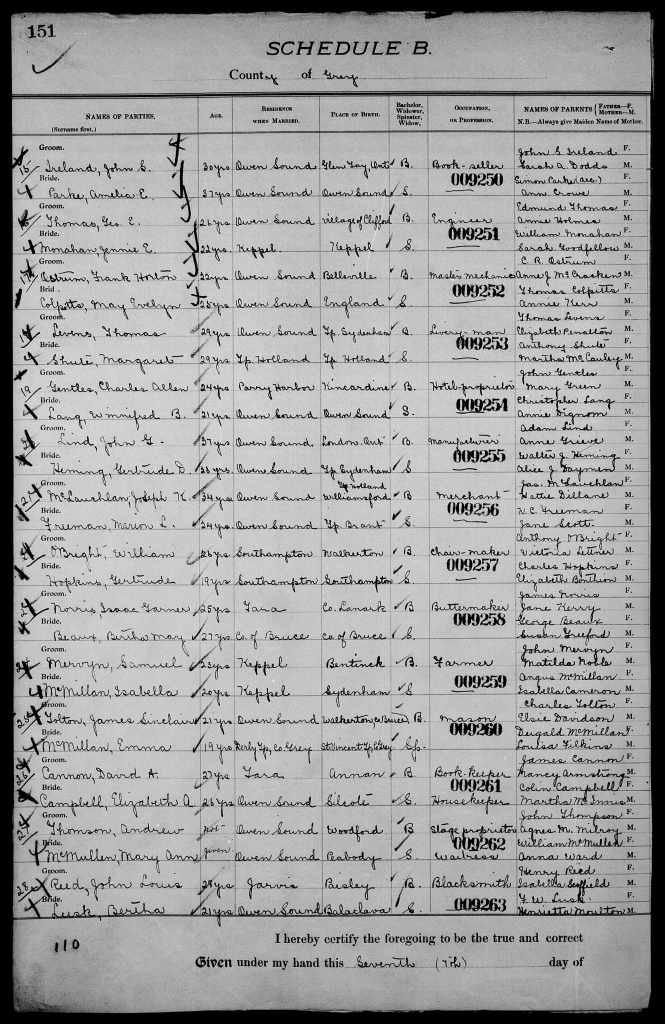 151
SCHEDULE B.
County of Grey
NAMES OF PARTIES. (Surname first.) AGE. RESIDENCE WHEN MARRIED. PLACE OF BIRTH. Bachelor, Widower, Spinster, Widow. OCCUPATION, OR PROFESSION. NAMES OF PARENTS {FATHER—F. MOTHER—M. N.B.—Always give Maiden Name of Mother.
Groom. John G Ireland F.
15 Ireland, John S. 30yrs Owen Sound Glen Tay, Ont B. Book-seller Sarah A Dodds M.
Bride. 009250 Simon Parke (dec) F.
Parke, Amelia E. 37yrs Owen Sound Owen Sound S. Ann Crowe M.
Groom. Edmund Thomas F.
Thomas, Geo. E. 26yrs Owen Sound Village of Clifford B. Engineer Annie Holmes M.
Bride. 009251 William Monahan F.
Monahan, Jennie E. 22yrs Keppel. Keppel S. Sarah Goodfellow M.
Groom. C. R. Ostrum F.
Ostrum, Frank Horton 22yrs Owen Sound Belleville B. Master mechanic Anne J McCracken M.
Brid 009252 Thomas Colpitts F.
Colpitts, May Evelyn 25yrs Owen Sound England S. Annie Kerr M.
Groom. Thomas Levens F.
Levens, Thomas 29yrs Owen Sound Tp. Sydenham B. Livery-man Elizabeth Penelton M.
Bride. 009253 Anthony Shute F.
Shute, Margaret 29yrs Tp. Holland Tp. Holland S. Martha McCauley M.
Groom. John Gentles F.
19 Gentles, Charles Allen 24yrs Parry Harbor Kincardine B. Hotel-proprietor Mary Green M.
Bride. 009254 Christopher Lang F.
Lang, Winnifred B. 21yrs Owen Sound Owen Sound S. Annie Dignom M.
Groom. Adam Lind F.
Lind, John G. 37yrs Owen Sound London. Ont B. Manufacturer Anne Grieve M.
Bride. 009255 Walter J Heming F.
Heming, Gertrude D. 25yrs. Owen Sound Tp Sydenham S. Alice J Gaymen M.
Groom. Tp Holland Jas. McLauchlan F.
21 McLauchlan, Joseph K. 34yrs Owen Sound Williamsford B Merchant Hattie Dillane M.
Bride. 009256 H. C. Freeman F.
Freeman, Marion L. 24yrs. Owen Sound Tp. Brant S. Jane Scott. M.
Groom. Anthony O'Bright F.
O'Bright, William 26yrs Southampton Walkerton B. Chair-maker Victoria Lettner M.
Bride. 009257 Charles Hopkins F.
Hopkins, Gertrude 19yrs Southampton Southampton S. Elizabeth M.
Groom. James Norris F.
Norris, Isaac Garner 25yrs Tara Co. Lanark B. Buttermaker Jane Kerry M.
Bride. 009258 George Beaux F.
Beaux, Bertha May 27yrs Co. of Bruce Co of Bruce S. Susan Greeford M.
Groom. John Mervyn F.
Mervyn, Samuel 23yrs Keppel Bentinck B. Farmer Matilda Noble M.
Bride. 009259 Angus McMillan F.
McMillan, Isabella 20yrs Keppel Sydenham S Isabella Cameron M.
Groom. Charles Tolton F.
Tolton, James Sinclair 21yrs Owen Sound Walkerton, Co Bruce B. Mason Elsie Davidson M.
Bride. 009260 Dugald McMillan F.
McMillan, Emma 19yrs Derby Tp, Co Grey St Vincent Tp, C. Grey Sp. Louisa Filkins M.
Groom. James Cannon F.
26 Cannon, David A. 27yrs Tara Annan B Book-keeper Nancy Armstrong M.
Bride. 009261 Colin Campbell F.
Campbell, Elizabeth A 25yrs Owen Sound Silcote S. Housekeeper Martha McInnis M.
Groom. John Thompson F.
27 Thomson, Andrew not Owen Sound Woodford B Stage proprietor Agnes M. Milroy M.
Bride. given 009262 William McMullen F.
McMullen, Mary Ann Owen Sound Peabody S Waitress Anna Ward M.
Groom. Henry Reed F.
28 Reed, John Louis 28yrs Jarvis Bisley B. Blacksmith Isabella Suffield M.
Bride. 009263 F. W. Lusk F.
Lusk, Bertha 21yrs Owen Sound Balaclava S. Henrietta Moulton M.
110
I hereby certify the foregoing to be the true and correct
Given under my hand this Seventh (7th) day of